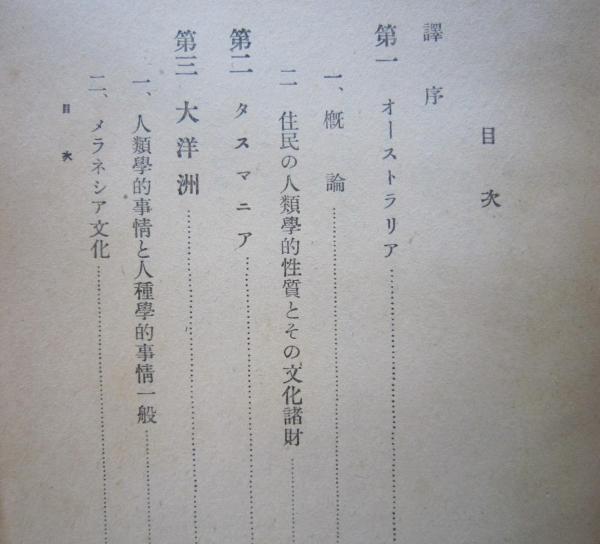 目次
譯序
第一 オーストラリア
一、概論
二 住民の人類學的性質とその文化諸財
第二 タスマニア
第三 大洋洲
一、人類學的事情と人種學的事情一般
二、メラネシア文化
目次